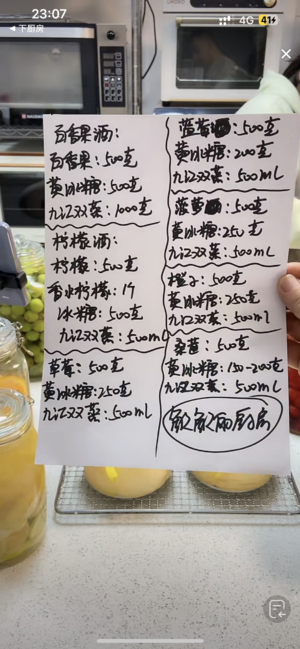 23:07
4G 41
◀ 下厨房
百香果酒:
百香果: 500克
黄冰糖: 500克
九江双蒸: 1000克
柠檬酒:
柠檬: 500克
香水柠檬: 1个
冰糖: 500克
九江双蒸: 500ml
草莓: 500克
黄冰糖: 250克
九江双蒸: 500ml
蓝莓: 500克
黄冰糖: 200克
九江双蒸: 500mL
菠萝: 500克
黄冰糖: 250克
九江双蒸: 500ml
橙子: 500克
黄冰糖: 250克
九江双蒸: 500ml
桑葚: 500克
黄冰糖: 150-200克
九江双蒸: 500mL